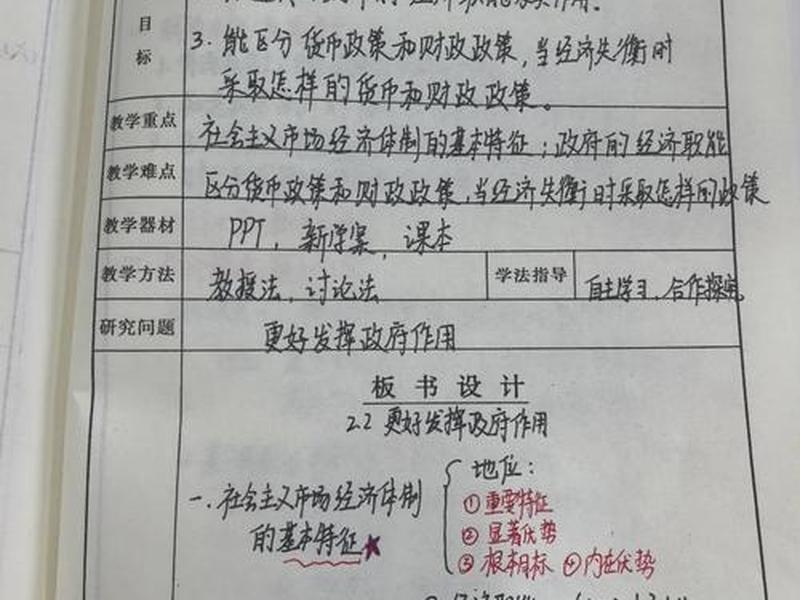 目标
3. 能区分货币政策和财政政策,当经济失衡时
采取怎样的货币和财政政策。
教学重点 社会主义市场经济体制的基本特征;政府的经济职能
教学难点 区分货币政策和财政政策,当经济失衡时采取怎样的政策
教学器材 PPT,新学案,课本
教学方法 教授法,讨论法 学法指导 自主学习,合作探究
研究问题 更好发挥政府作用
板书设计
2.2 更好发挥政府作用
一.社会主义市场经济体制
的基本特征★
地位:
①重要特征
②显著优势
③根本目标 ④内在优势